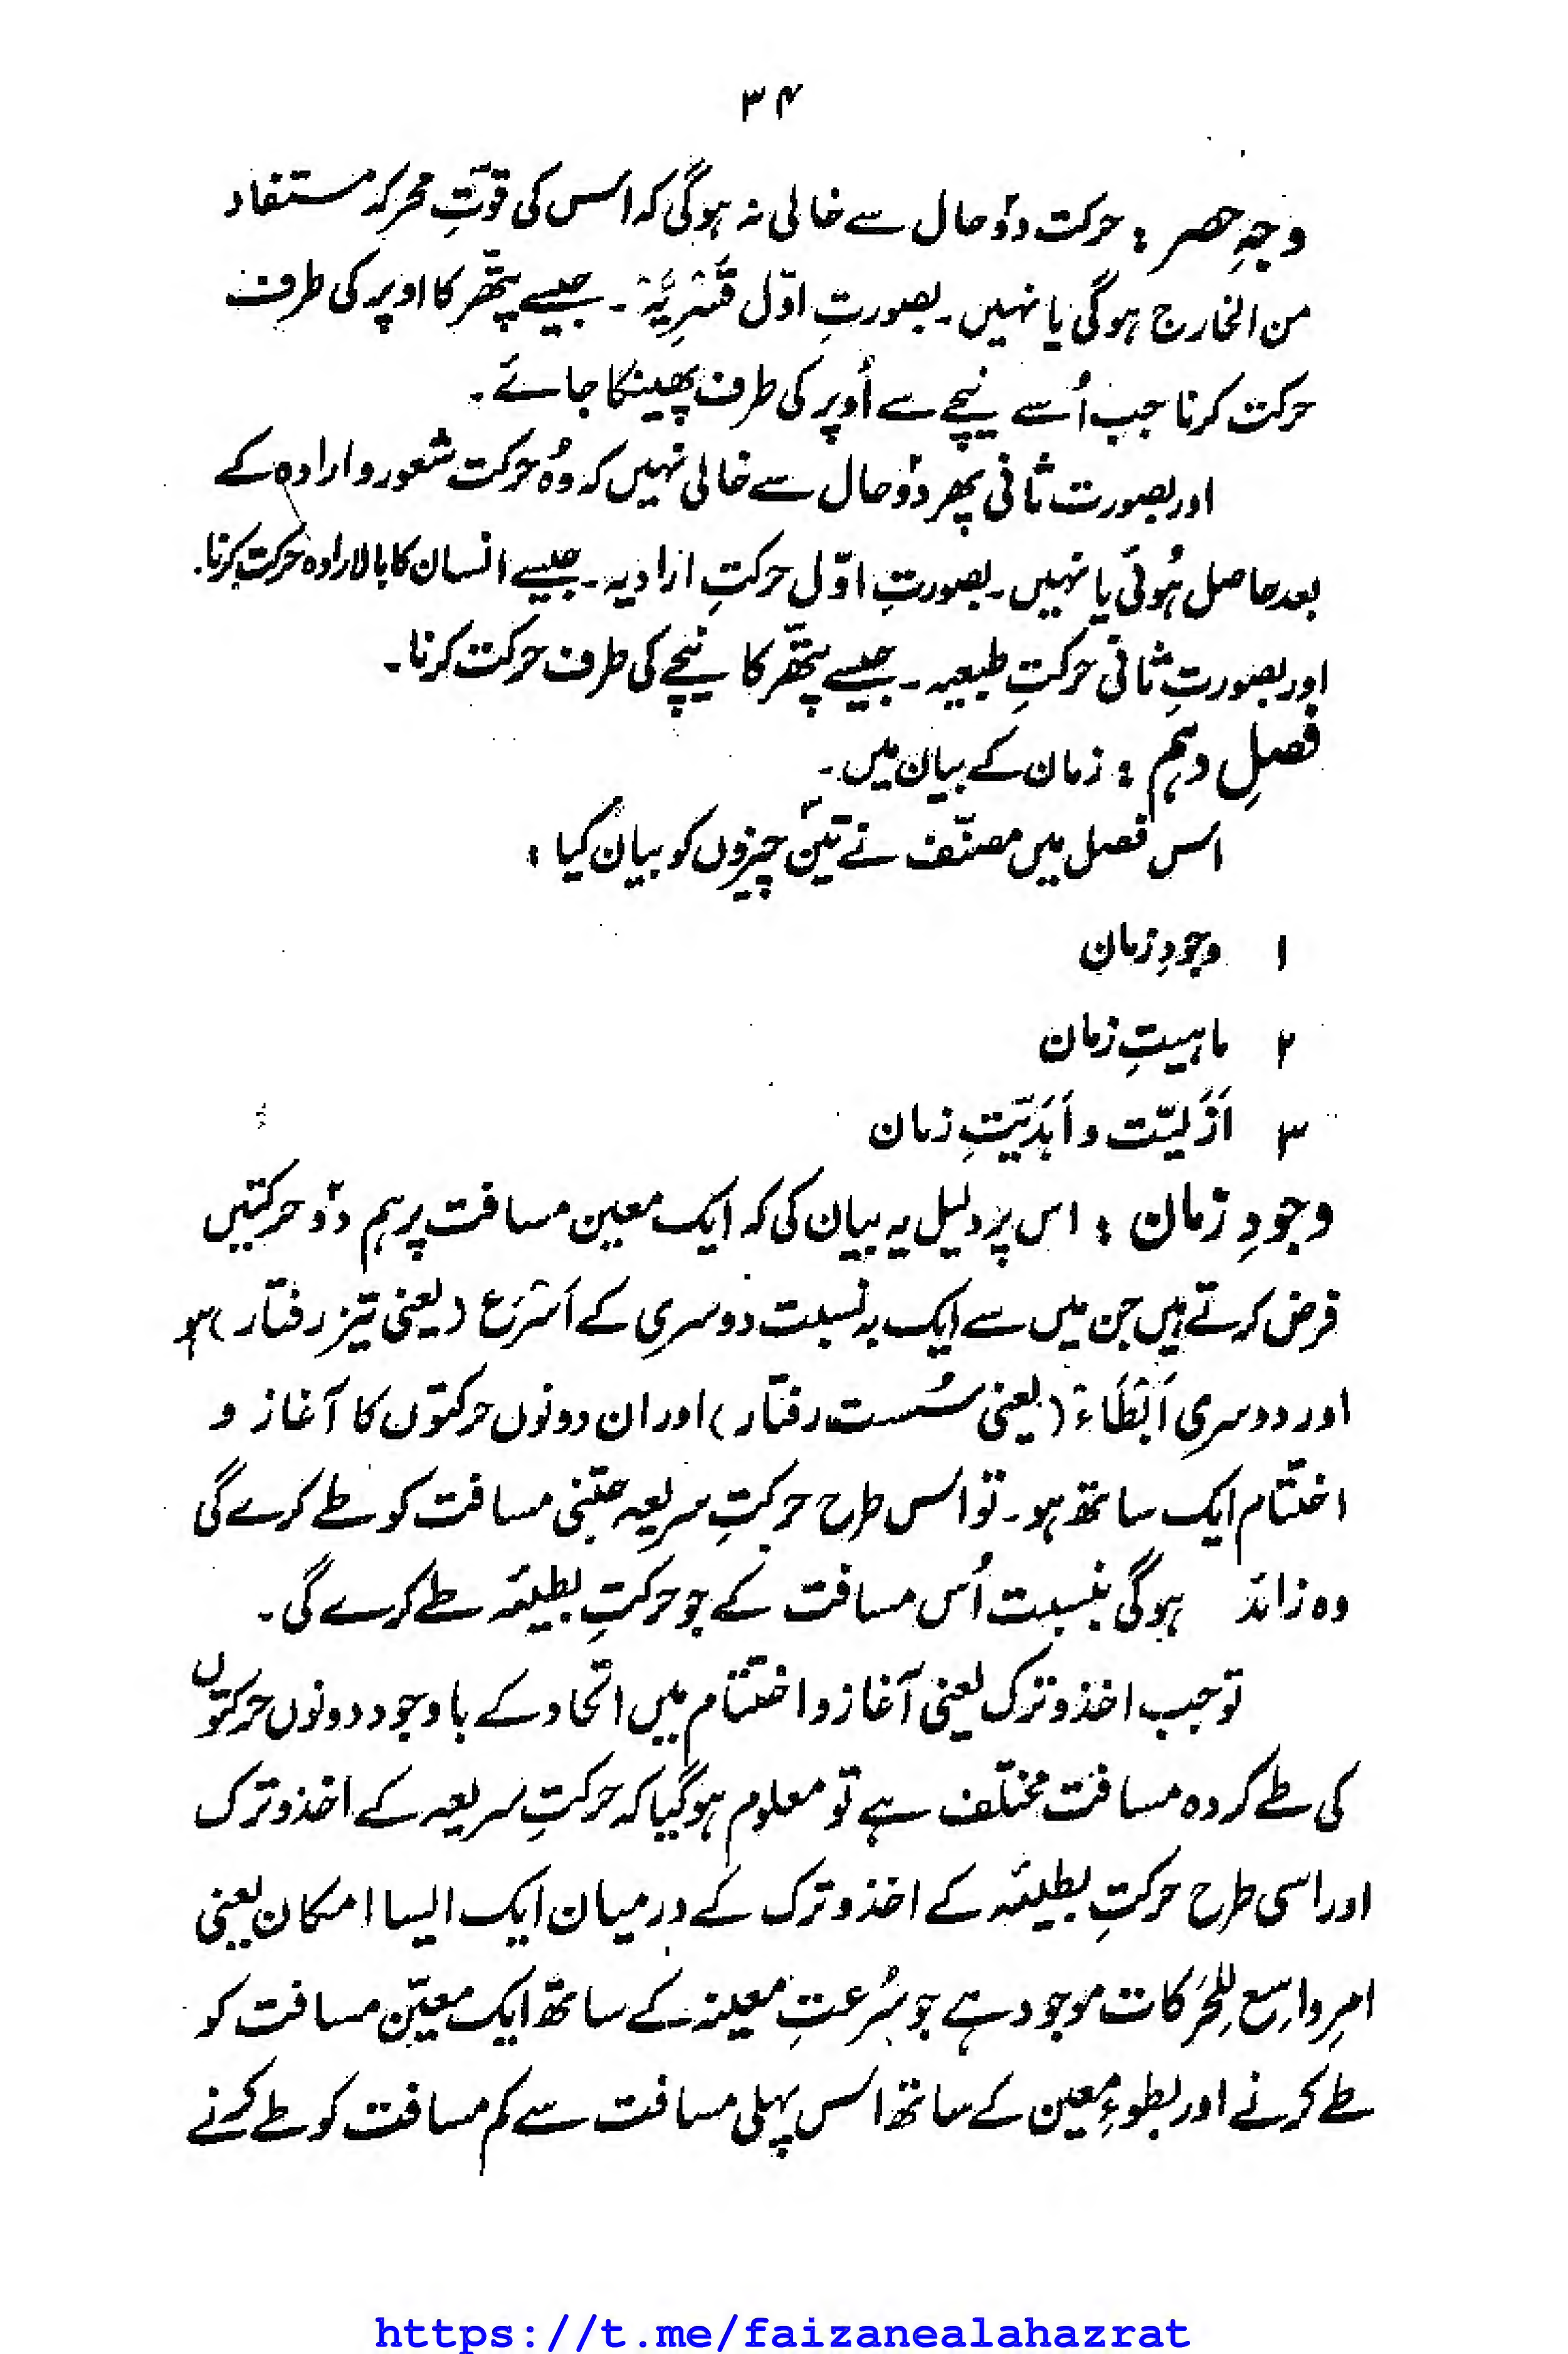 ۳۴
وجہِ حصر : حرکت دوٗ حال سے خالی نہ ہوگی کہ اس کی قوّتِ محرکہ مستفاد
من الخارج ہوگی یا نہیں۔ بصورتِ اوّل قَسْرِیَّہ۔ جیسے پتّھر کا اوپر کی طرف
حرکت کرنا جب اُسے نیچے سے اُوپر کی طرف پھینکا جائے۔
اور بصورت ثانی پھر دوٗ حال سے خالی نہیں کہ وُہ حرکت شعور و ارادہ کے
بعد حاصل ہُوئی یا نہیں۔ بصورتِ اوّل حرکتِ ارادیہ۔ جیسے انسان کا بالارادہ حرکت کرنا۔
اور بصورتِ ثانی حرکتِ طبعیہ۔ جیسے پتّھر کا نیچے کی طرف حرکت کرنا۔
فصلِ دہم : زمان کے بیان میں۔
اس فصل میں مصنّف نے تین چیزوں کو بیان کیا :
۱ وجودِ زمان
۲ ماہیتِ زمان
۳ اَزَلیّت و اَبَدیّتِ زمان
وجودِ زمان : اس پر دلیل یہ بیان کی کہ ایک معین مسافت پر ہم دوٗ حرکتیں
فرض کرتے ہیں جن میں سے ایک بہ نسبت دوسری کے اَسْرَع (یعنی تیز رفتار) ہو
اور دوسری اَبْطَاءْ (یعنی سُست رفتار) اور ان دونوں حرکتوں کا آغاز و
اختتام ایک ساتھ ہو۔ تو اس طرح حرکتِ سریعہ جتنی مسافت کو طے کرے گی
وہ زائد ہوگی بنسبت اُس مسافت کے جو حرکتِ بطیئہ طے کرے گی۔
تو جب اخذ و ترک یعنی آغاز و اختتام میں اتحاد کے باوجود دونوں حرکتوں
کی طے کردہ مسافت مختلف ہے تو معلوم ہوگیا کہ حرکتِ سریعہ کے اخذ و ترک
اور اسی طرح حرکتِ بطیئہ کے اخذ و ترک کے درمیان ایک ایسا امکان یعنی
امرِ واسِع لِلحَرَکات موجود ہے جو سُرعتِ معینہ کے ساتھ ایک معیّن مسافت کو
طے کرنے اور بطوءِ معین کے ساتھ اس پہلی مسافت سے کم مسافت کو طے کرنے
https://t.me/faizanealahazrat